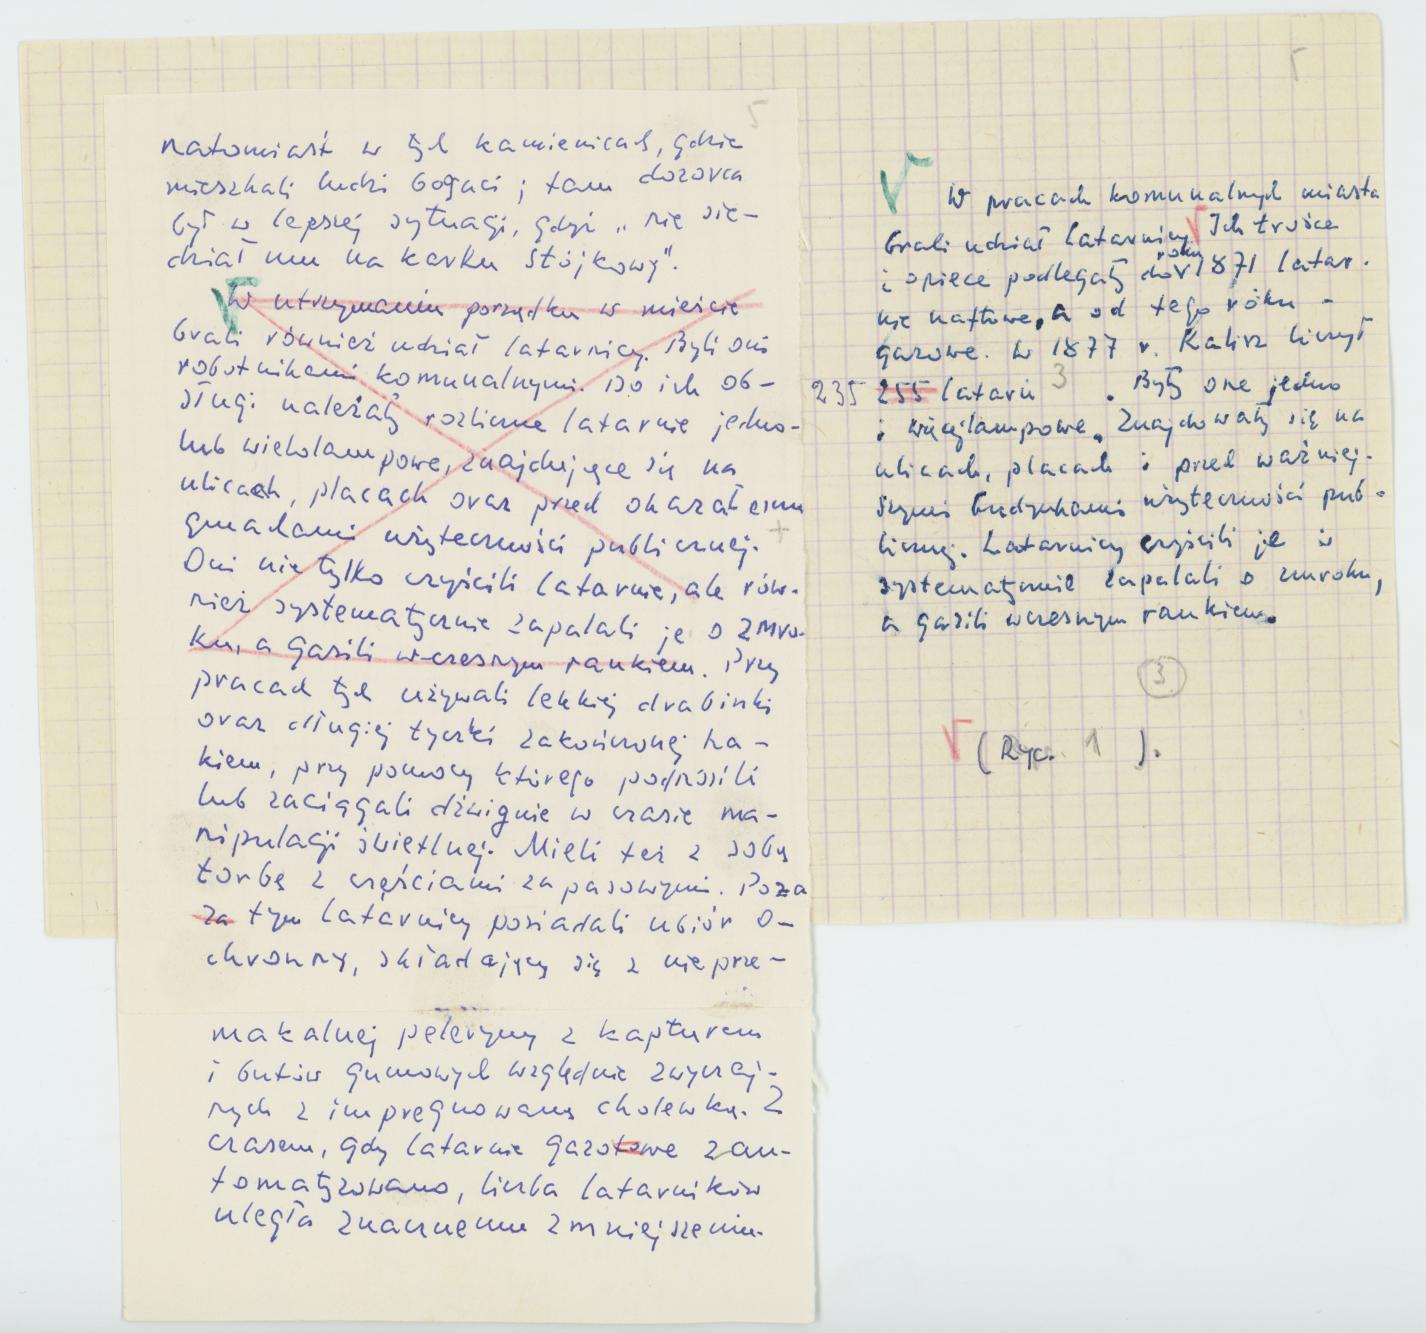 5
natomiast w tych kamienicach, gdzie
mieszkali ludzi bogaci; tam dozorca
był w lepszej sytuacji, gdyż „nie sie-
dział mu na karku stójkowy".
W utrzymaniu porządku w mieście
brali również udział latarnicy. Byli oni
robotnikami komunalnymi. Do ich ob-
sługi należały rozliczne latarnie jedno-
lub wielolampowe, znajdujące się na
ulicach, placach oraz przed okazałemi
gmachami użyteczności publicznej.
Oni nie tylko czyścili latarnie, ale rów-
nież systematycznie zapalali je o zmro-
ku, a gasili wczesnym rankiem. Przy
pracach tych używali lekkiej drabinki
oraz długiej tyczki zakończonej ha-
kiem, przy pomocy którego podnosili
lub zaciągali dźwignie w czasie ma-
nipulacji świetlnej. Mieli też z sobą
torbę z częściami zapasowymi. Poza
za tym latarnicy posiadali ubiór o-
chronny, składający się z nieprze-
makalnej peleryny z kapturem
i butów gumowych względnie zwyczaj-
nych z impregnowaną cholewką. Z
czasem, gdy latarnie gazotowe zau-
tomatyzowano, liczba latarników
uległa znacznemu zmniejszeniu.
5
W pracach komunalnych miasta
brali udział latarnicy. Ich trosce
i opiece podlegały do roku 1871 latar-
nie naftowe, a od tego roku -
gazowe. W 1877 r. Kalisz liczył
235 255 latarń 3 . Były one jedno
i więcejlampowe. Znajdowały się na
ulicach, placach i przed ważniej-
szymi budynkami użyteczności pub-
licznej. Latarnicy czyścili je i
systematycznie zapalali o zmroku,
a gasili wczesnym rankiem.
3
(Ryc. 1 ).